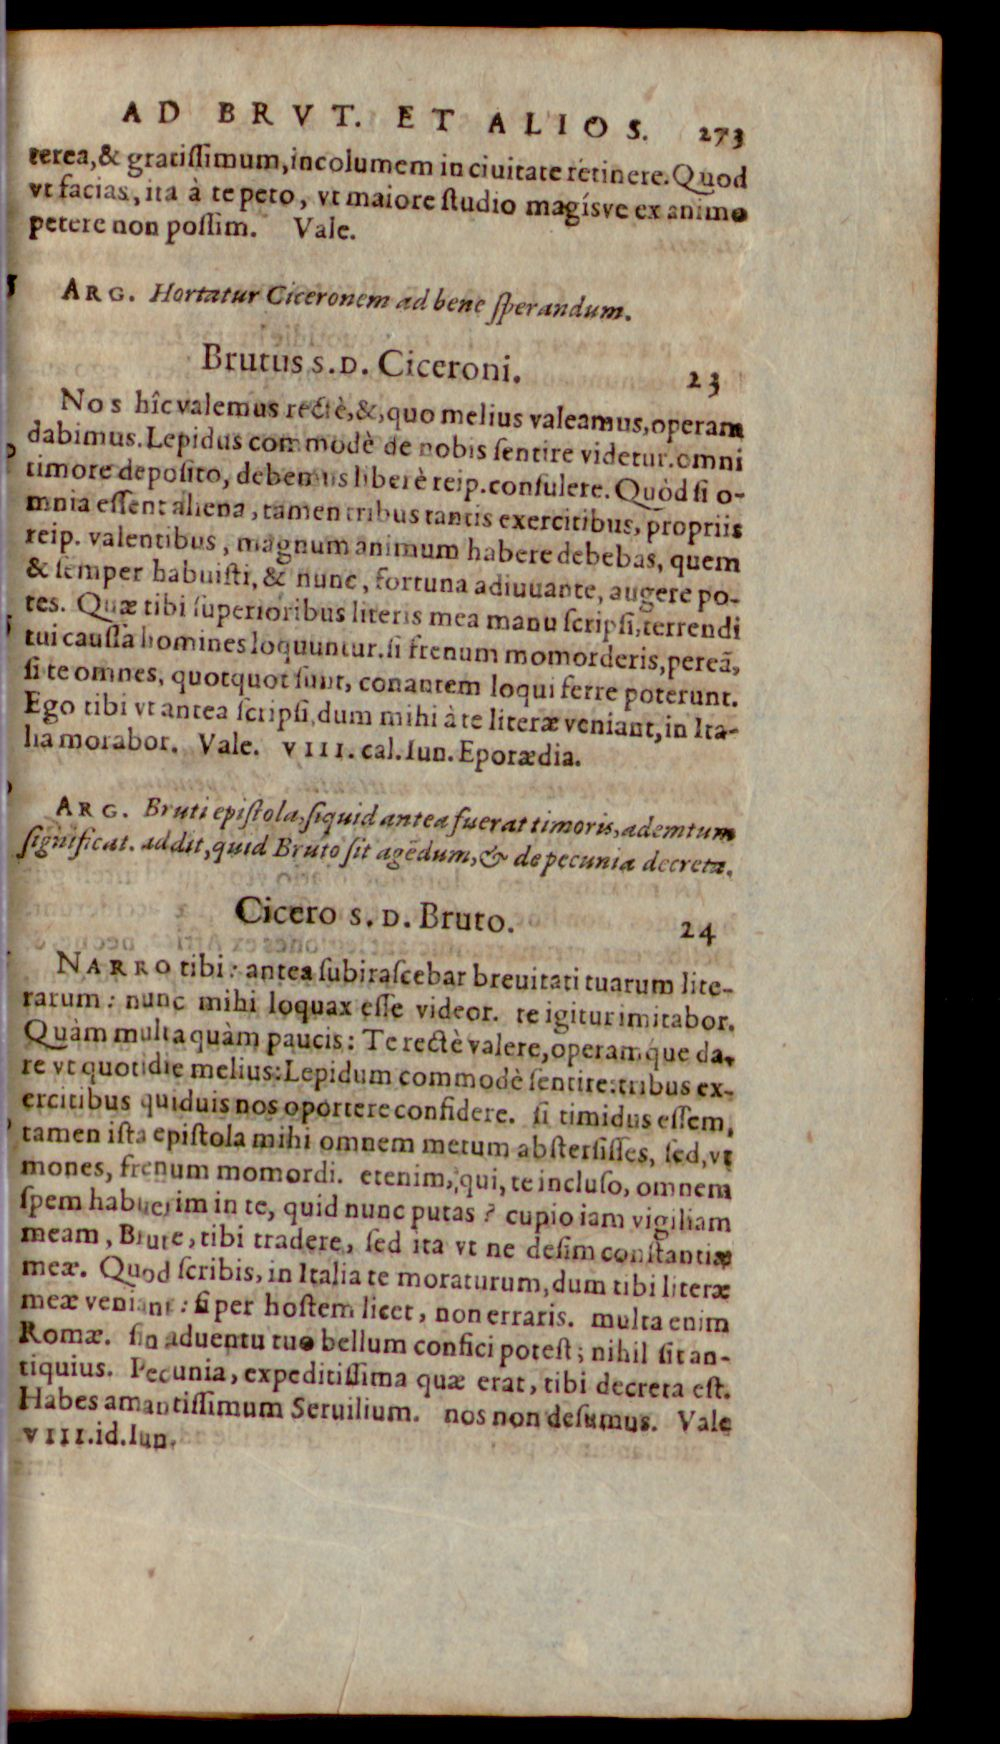 AD BRVT. ET ALIOS. 273
terea,& gratissimum,incolumem in ciuitate retinere.Quod
vt facias, ita à te peto, vt maiore studio magísve ex animo
petere non possim. Vale.
ARG. Hortatur Ciceronem ad bene sperandum.
Brutus s.D. Ciceroni. 23
Nos hîc valemus rectè,&,quo melius valeamus,operam
dabimus.Lepidus commodè de nobis sentire videtur.omni
timore deposito, debemus liberè reip.consulere. Quòd si o-
mnia essent aliena, tamen tribus tantis exercitibus, propriis
reip. valentibus, magnum animum habere debebas, quem
& semper habuisti, & nunc, fortuna adiuuante, augere po-
tes. Quæ tibi superioribus literis mea manu scripsi,terrendi
tui caussa homines loquuntur.si frenum momorderis,pereã,
si te omnes, quotquot sunt, conantem loqui ferre poterunt.
Ego tibi vt antea scripsi,dum mihi à te literæ veniant,in Ita-
lia morabor. Vale. VIII.cal.Iun.Eporædia.
ARG. Bruti epistola,siquid antea fuerat timoris,ademtum
significat. addit,quid Bruto sit agẽdum,& de pecunia decreta.
Cicero s.D.Bruto. 24
NARRO tibi: antea subirascebar breuitati tuarum lite-
rarum: nunc mihi loquax esse videor. te igitur imitabor.
Quàm multa quàm paucis: Te rectè valere,operamque da-
re vt quotidie melius:Lepidum commodè sentire:tribus ex-
ercitibus quiduis nos oportere confidere. si timidus essem,
tamen ista epistola mihi omnem metum abstersisses, sed,vt
mones, frenum momordi. etenim, qui, te incluso, omnem
spem habuerim in te, quid nunc putas? cupio iam vigiliam
meam, Brute, tibi tradere, sed ita vt ne desim constantiæ
meæ. Quod scribis, in Italia te moraturum,dum tibi literæ
meæ veniant: si per hostem licet, non erraris. multa enim
Romæ. sin aduentu tuo bellum confici potest; nihil sit an-
tiquius. Pecunia, expeditissima quæ erat, tibi decreta est.
Habes amantissimum Seruilium. nos non desumus. Vale
VIII.id.Iun.